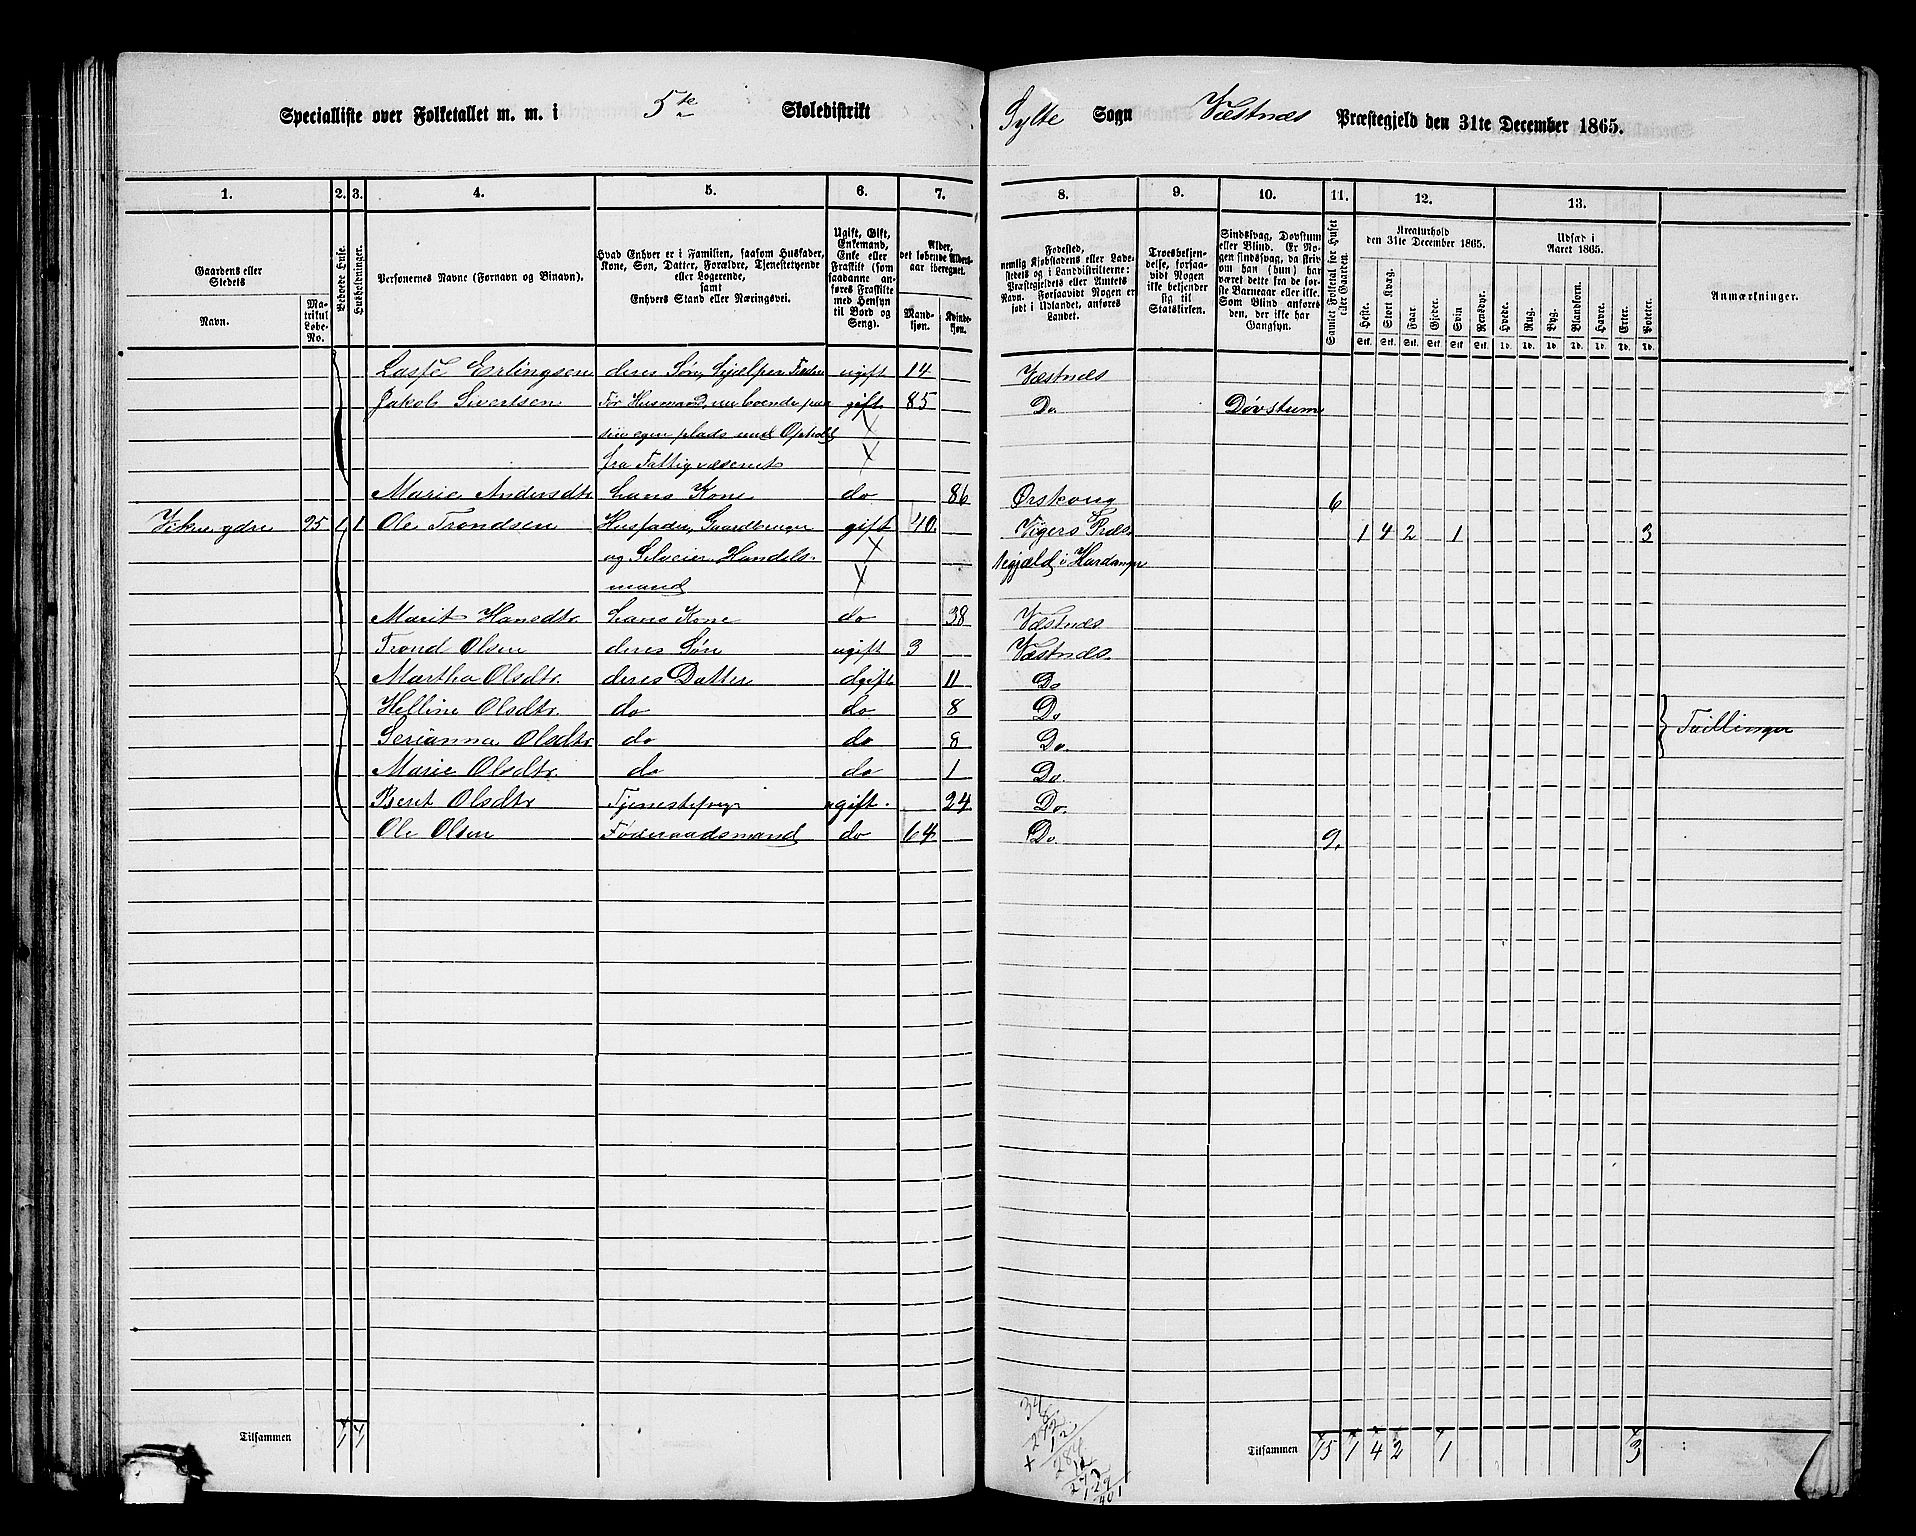 Specialliste over Folketallet m. m. i 5te Skoledistrikt Sylte Sogn Vestnæs Præstegjeld den 31te December 1865.
1. 2. 3. 4. 5. 6. 7. 8. 9. 10. 11. 12. 13.
Gaardens eller Stedets
Navn.
Matrikul Løbe-No.
Beboede Huse.
Husholdninger.
Personernes Navne (Fornavn og Binavn).
Hvad Enhver er i Familien, saasom Husfader,
Kone, Søn, Datter, Forældre, Tjenestetyende
eller Logerende,
samt
Enhvers Stand eller Næringsvei.
Ugift, Gift,
Enkemand,
Enke eller
Fraskilt (som
saadanne anføres
Fraskilte
med Hensyn
til Bord og
Seng).
Alder,
det løbende Aldersaar
iberegnet.
Mandkjøn.
Kvindekjøn.
Fødested,
nemlig Kjøbstadens eller Ladestedets
og i Landdistrikterne:
Præstegjeldets eller Amtets
Navn. Forsaavidt Nogen er
født i Udlandet, anføres
Landet.
Troesbekjendelse,
forsaavidt
Nogen
ikke bekjender
sig til
Statskirken.
Sindssvag, Døvstum
eller Blind. Er Nogen
sindssvag, da skrives
om han (hun) har
været dette fra de første
Barneaar eller ikke.
Som Blind anføres
den, der ikke har
Gangsyn.
Samlet Folketal for Huset eller Gaarden.
Kreaturhold
den 31te December 1865.
Heste. Stort Kvæg. Faar. Gjeder. Svin. Rensdyr.
Stk. Stk. Stk. Stk. Stk. Stk.
Udsæd i
Aaret 1865.
Hvede. Rug. Byg. Blandkorn. Havre. Erter. Poteter.
Td. Td. Td. Td. Td. Td. Td.
Anmærkninger.
Lasse Erlingsen deres Søn, hjælper Faderen ugift 14 Vestnæs
Jakob Sivertsen Før Husmand, nu boende paa gift 85 Do. Døvstum
sin egen plads med Ophold
fra Fattigvæsenet
Marie Andersdtr hans Kone do 86 Ørskoug 6
Viken ydre 95 1 1 Ole Trondsen Husfader, Gaardbruger gift 40 Vigers Præs- 1 4 2 1 3
og Handels- tegjæld i Hardanger
mand
Marit Hansdtr. hans Kone do 38 Vestnæs
Trond Olsen deres Søn ugift 3 Vestnæs.
Martha Olsdtr. deres Datter Ugift 11 Do
Helline Olsdtr. do do 8 Do
Serianna Olsdtr. do do 8 Do. Tvillinger
Marie Olsdtr. do do 1 Do.
Beret Olsdtr Tjenestepige ugift. 24 Do.
Ole Olsen Føderaadsmand do 64 Do. 9.
Tilsammen 1 1 Tilsammen 15 1 4 2 1 3